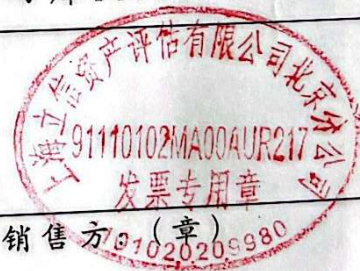 上海立信资产评估有限公司北京分公司
91110102MA00AUR217
发票专用章
销售方:(章)
1101020209980